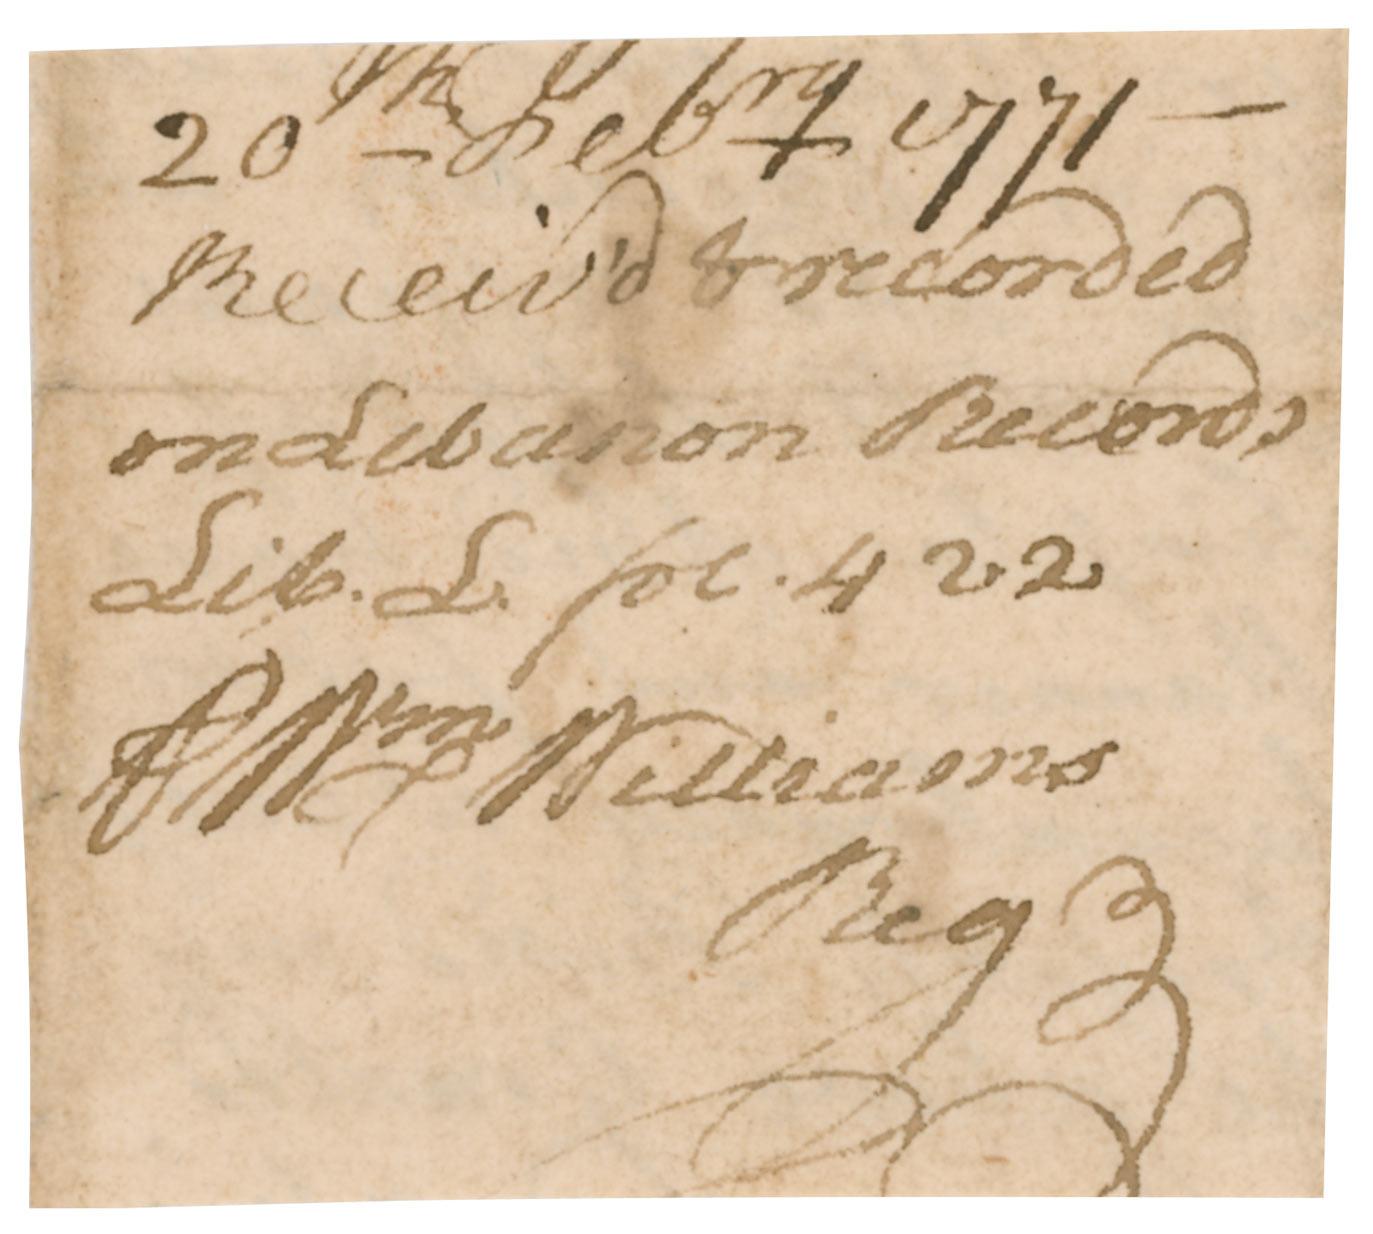 20th Febry 1771 —
Receiv'd & recorded
on Lebanon Records
Lib. L. fol. 422
⅌ Wm Williams
Regr